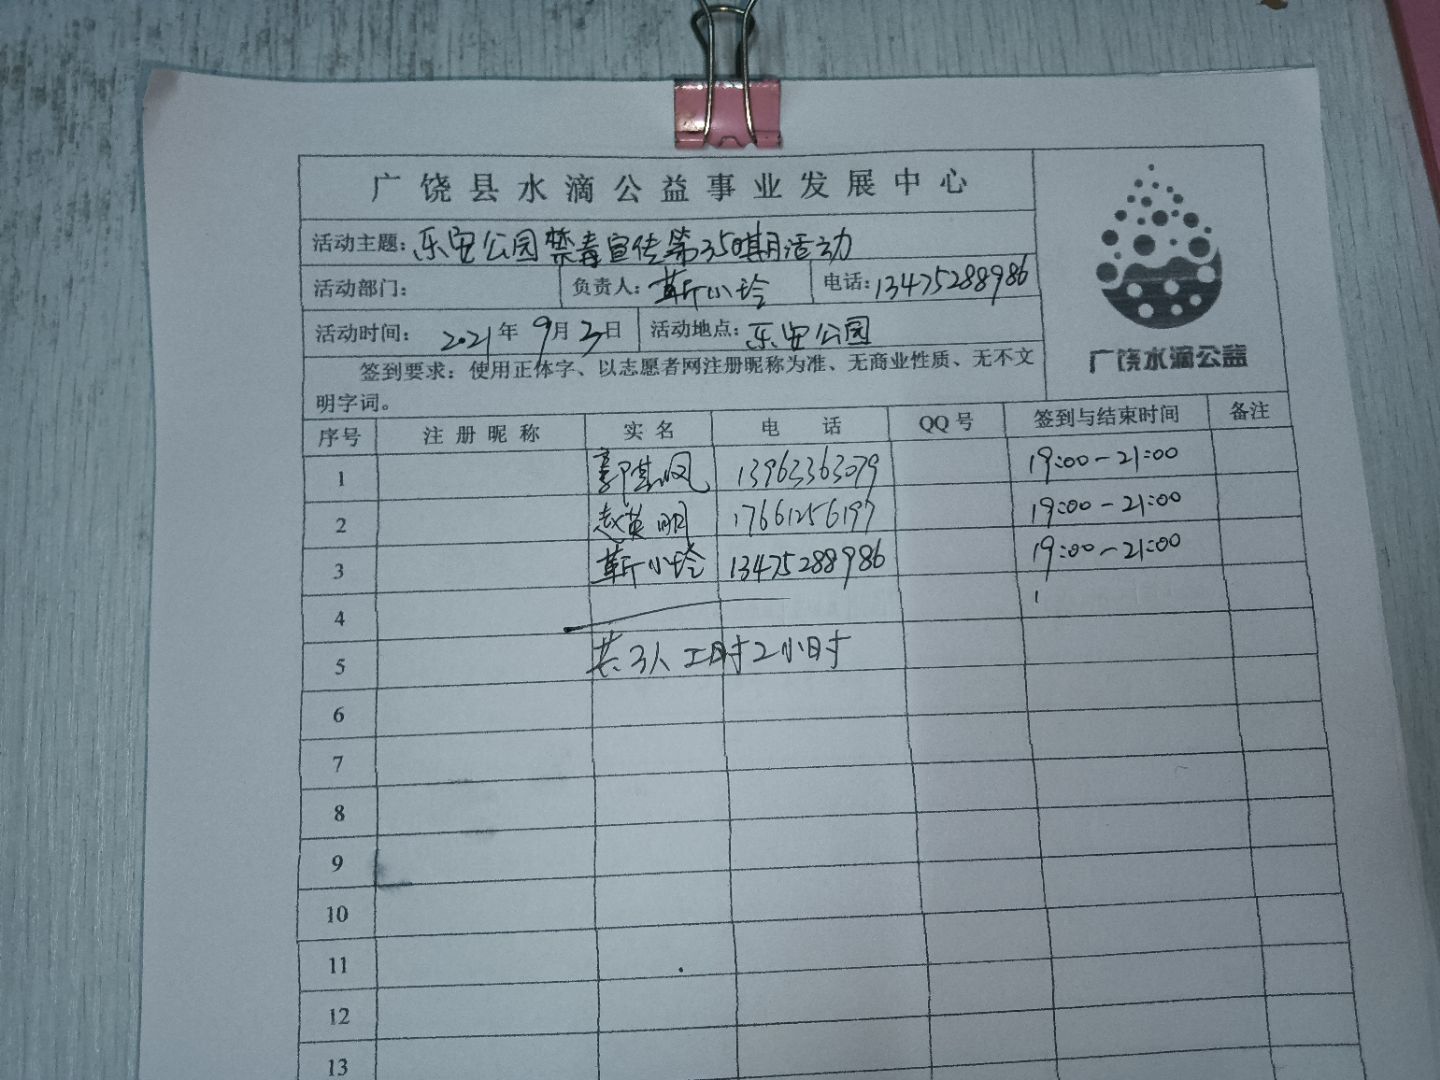 广饶县水滴公益事业发展中心
活动主题：乐安公园禁毒宣传第350期活动
活动部门： 负责人：靳小玲 电话：13475288986
活动时间： 2021年9月3日 活动地点：乐安公园
广饶水滴公益
签到要求：使用正体字、以志愿者网注册昵称为准、无商业性质、无不文
明字词。
序号 注册昵称 实名 电 话 QQ号 签到与结束时间 备注
1 郭 凤 13963363079 19:00-21:00
2 赵英明 17661256197 19:00-21:00
3 靳小玲 13475288986 19:00-21:00
4
5 共3人工时2小时
6
7
8
9
10
11
12
13